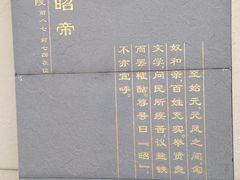 至始元元凤之间，匈
奴和亲，百姓充实，举贤良
文学，问民所疾苦，议盐铁
而罢榷酤，尊号曰『昭』
不亦宜呼。
昭帝
陵 前八七 前七四在位